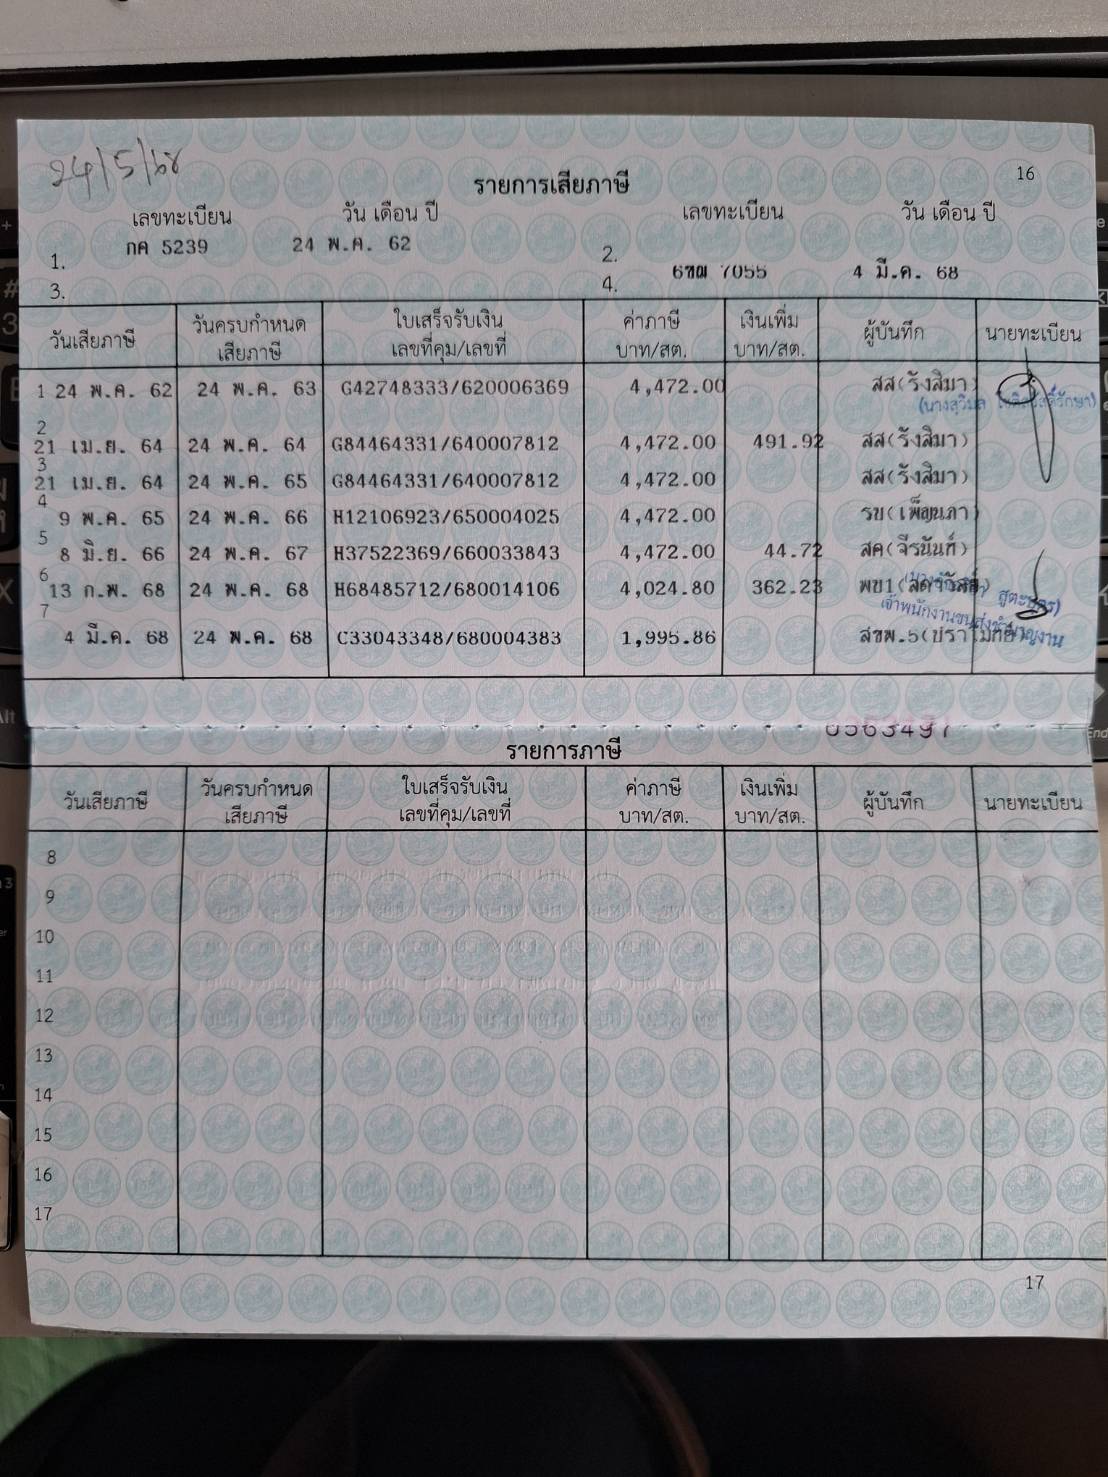 24/5/68
16
รายการเสียภาษี
เลขทะเบียน วัน เดือน ปี เลขทะเบียน วัน เดือน ปี
1. กค 5239 24 พ.ค. 62 2.
3. 4. 6ขฒ 7055 4 มี.ค. 68
วันเสียภาษี วันครบกำหนดเสียภาษี ใบเสร็จรับเงิน เลขที่คุม/เลขที่ ค่าภาษี บาท/สต. เงินเพิ่ม บาท/สต. ผู้บันทึก นายทะเบียน
1 24 พ.ค. 62 24 พ.ค. 63 G42748333/620006369 4,472.00 สส(รังสิมา)
2 21 เม.ย. 64 24 พ.ค. 64 G84464331/640007812 4,472.00 491.92 สส(รังสิมา)
3 21 เม.ย. 64 24 พ.ค. 65 G84464331/640007812 4,472.00 สส(รังสิมา)
4 9 พ.ค. 65 24 พ.ค. 66 H12106923/650004025 4,472.00 รบ(เพ็ญนภา)
5 8 มิ.ย. 66 24 พ.ค. 67 H37522369/660033843 4,472.00 44.72 สค(จีรนันท์)
6 13 ก.พ. 68 24 พ.ค. 68 H68485712/680014106 4,024.80 362.23
เจ้าพนักงานขนส่งชำนาญงาน
7 4 มี.ค. 68 24 พ.ค. 68 C33043348/680004383 1,995.86 สขพ.5(ปราโมทย์)
0563497
รายการภาษี
วันเสียภาษี วันครบกำหนดเสียภาษี ใบเสร็จรับเงิน เลขที่คุม/เลขที่ ค่าภาษี บาท/สต. เงินเพิ่ม บาท/สต. ผู้บันทึก นายทะเบียน
8
9
10
11
12
13
14
15
16
17
17